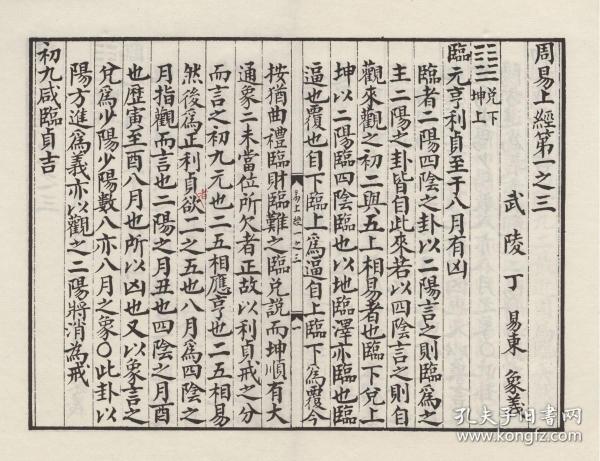 周易上經第一之三
武陵丁易東象義
兌下
坤上
臨元亨利貞至于八月有凶
臨者二陽四陰之卦以二陽言之則臨爲之
主二陽之卦皆自此來若以四陰言之則自
觀來觀之初二與五上相易者也臨下兌上
坤以二陽臨四陰臨也以地臨澤亦臨也臨
逼也覆也自下臨上爲逼自上臨下爲覆今
按猶曲禮臨財臨難之臨兌說而坤順有大
通象二未當位所欠者正故以利貞戒之分
而言之初九元也二五相應亨也二五相易
然後爲正利貞欲二之五也八月爲四陰之
者
月指觀而言也二陽之月丑也四陰之月酉
也歷寅至酉八月也所以凶也又以象言之
兌爲少陽少陽數八亦八月之象○此卦以
陽方進爲義亦以觀之二陽將消爲戒
初九咸臨貞吉
易上經一之三
一
孔夫子旧書网
www.kongfz.com